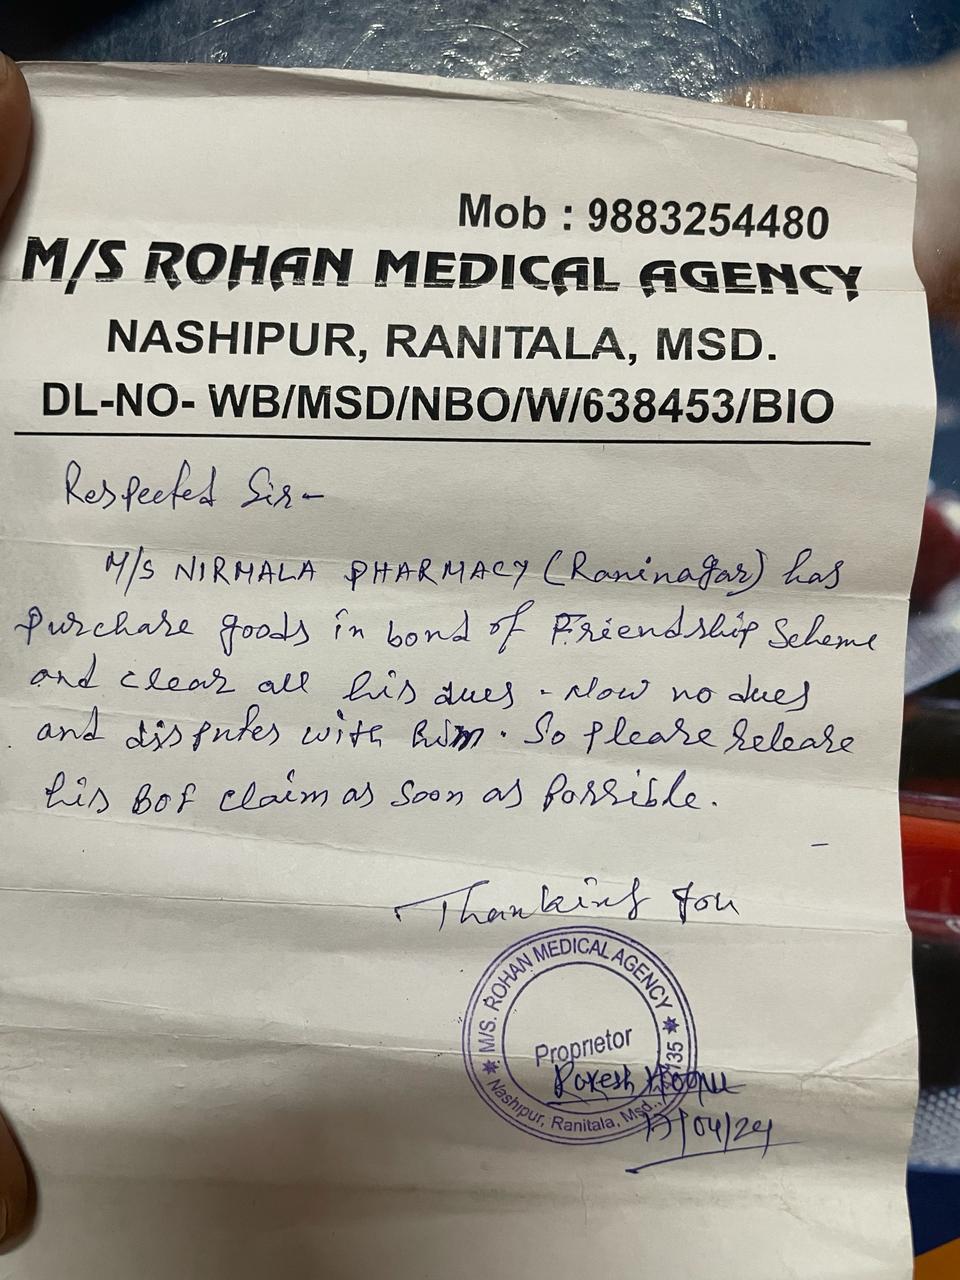 Mob : 9883254480
M/S ROHAN MEDICAL AGENCY
NASHIPUR, RANITALA, MSD.
DL-NO- WB/MSD/NBO/W/638453/BIO
Respected Sir-
M/S NIRMALA PHARMACY (Raninagar) has
purchare goods in bond of Friendship Scheme
and clear all his dues. Now no dues
and disputes with him. So please release
his BOF claim as soon as possible.
Thanking You
M/S. ROHAN MEDICAL AGENCY
Proprietor
Rakesh
Nashipur, Ranitala, Msd., 135
17/04/24